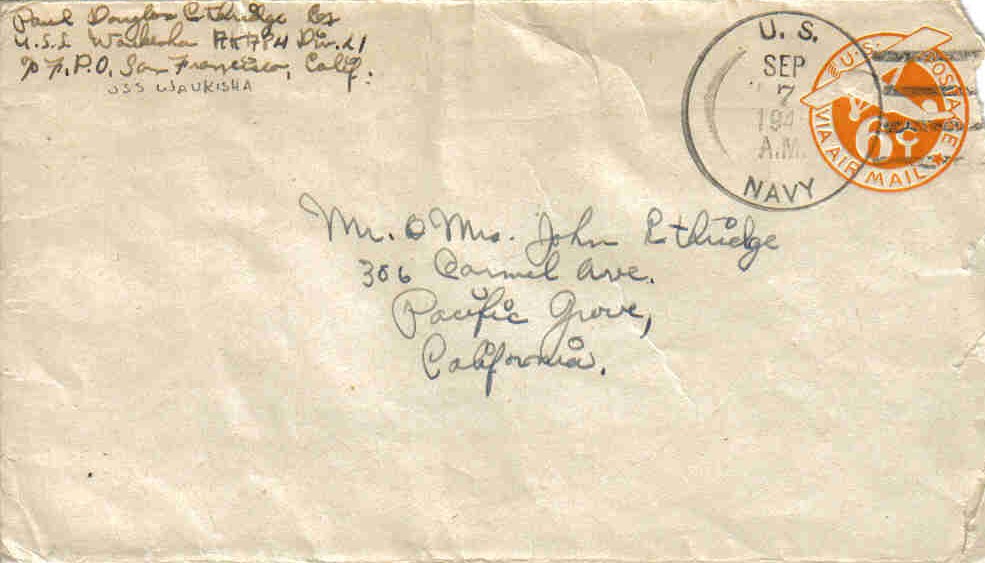 Paul Douglas Ethridge Cox
U.S.S Waukesha AKA84 Div. 21
% F.P.O. San Francisco, Calif.
USS WAUKISHA
U. S.
SEP
7
194
A.M.
NAVY
U.S. POSTAGE
6¢
VIA AIR MAIL
Mr. & Mrs. John Ethridge
306 Carmel Ave.
Pacific Grove,
California.